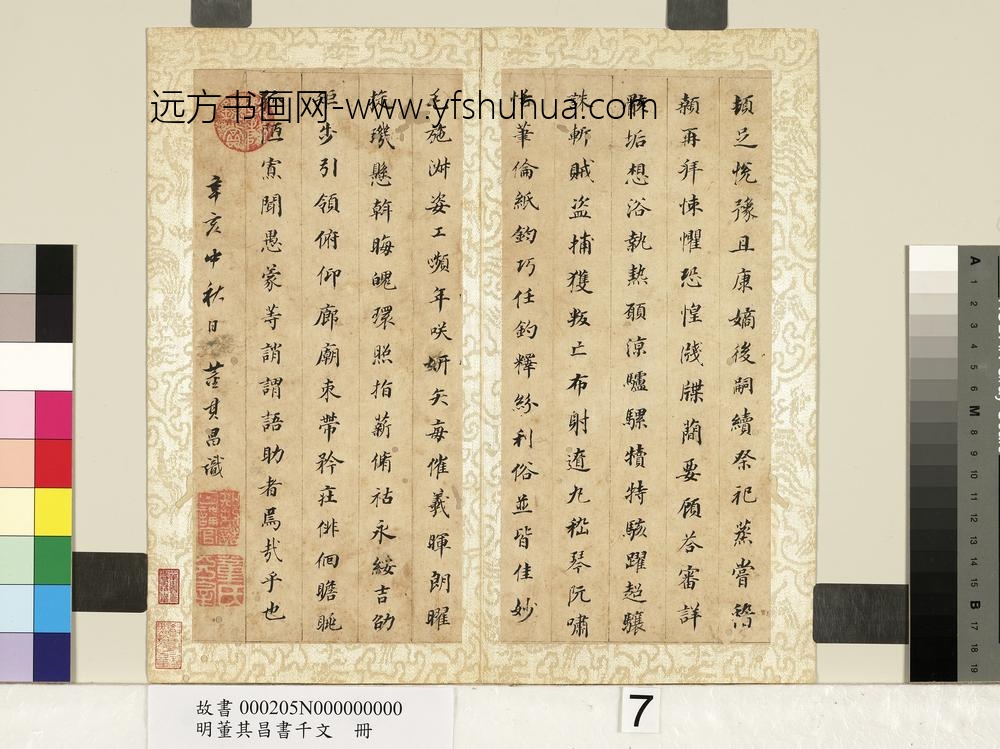 远方书画网-www.yfshuhua.com
頓足悅豫且康嫡後嗣續祭祀蒸嘗稽
顙再拜悚懼恐惶牋牒蕳要顧荅審詳
骸垢想浴執熱願涼驢騾犢特駭躍超驤
誅斬賊盜捕獲叛亡布射遼丸嵇琴阮嘯
恬筆倫紙鈞巧任釣釋紛利俗並皆佳妙
毛施淑姿工嚬年咲妍矢每催羲暉朗曜
旋璣懸斡晦魄環照指薪脩祜永綏吉劭
矩步引領俯仰廊廟束帶矜莊俳佪瞻眺
陋寡聞愚蒙等誚謂語助者焉哉乎也
辛亥中秋日董其昌識
故書 000205N000000000
明董其昌書千文 冊
7